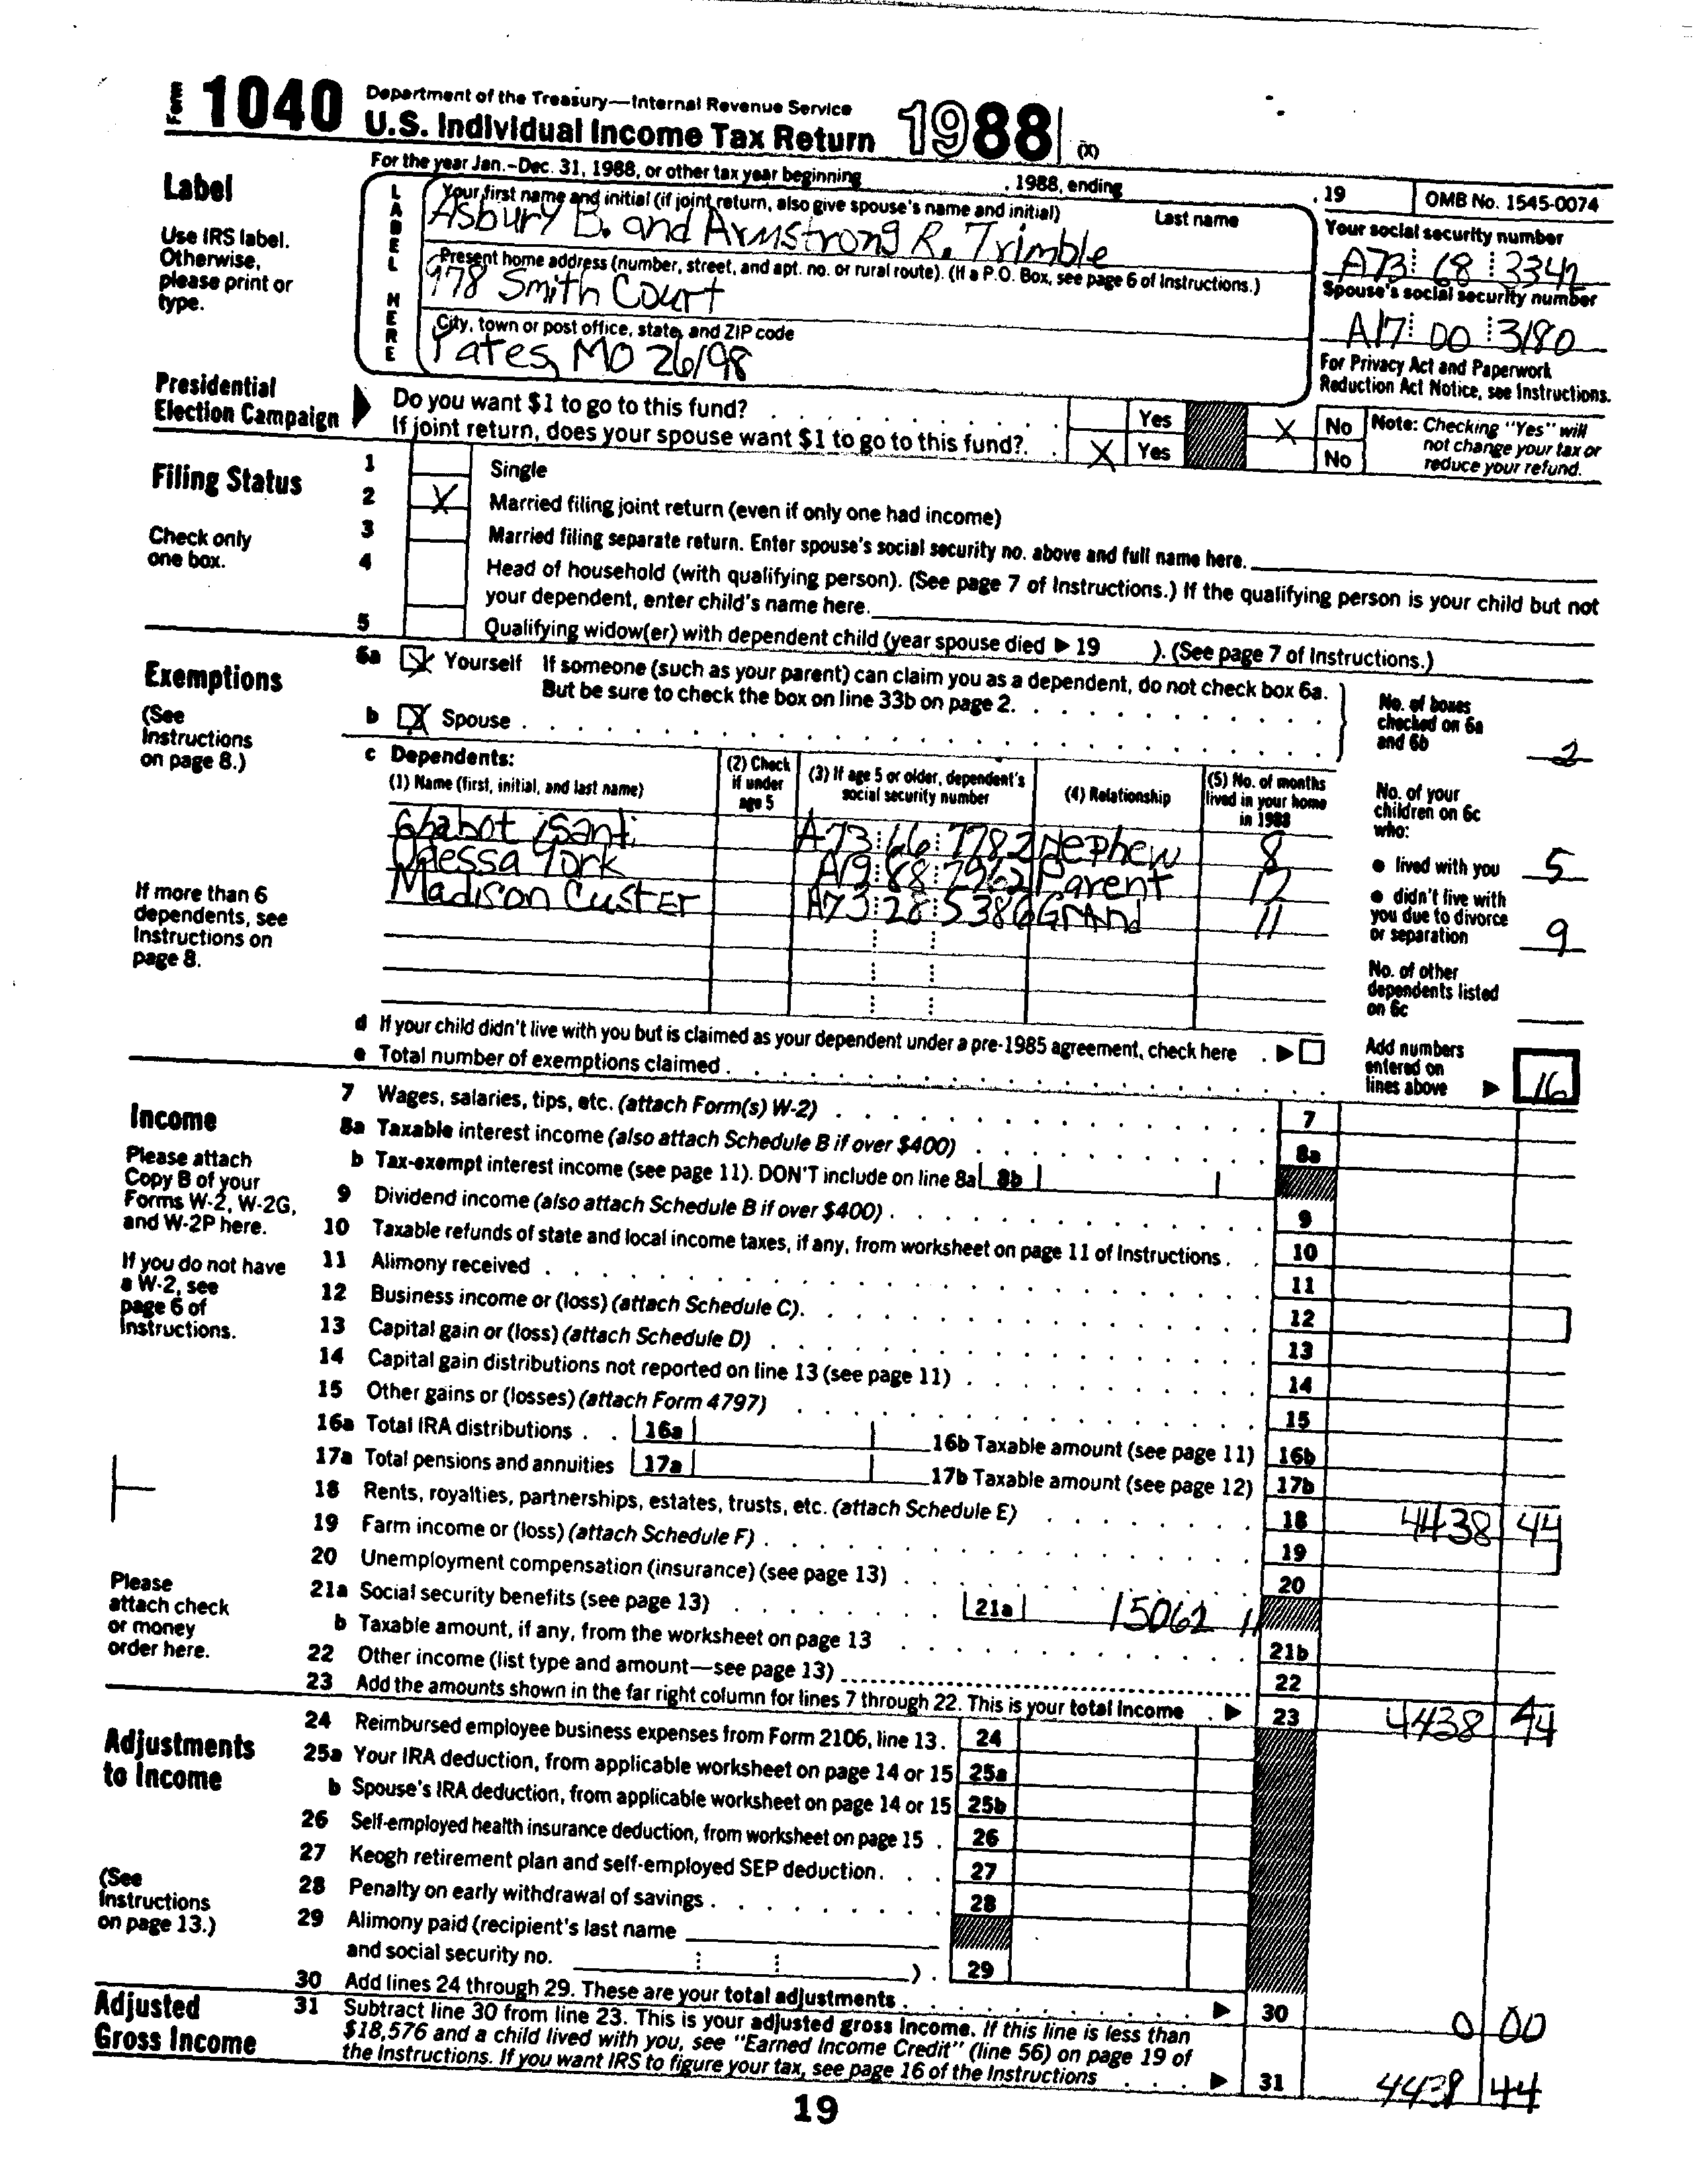 Form 1040 Department of the Treasury—Internal Revenue Service
U.S. Individual Income Tax Return 1988 (X)
For the year Jan.-Dec. 31, 1988, or other tax year beginning , 1988, ending , 19 OMB No. 1545-0074
Label
Use IRS label. Otherwise, please print or type.
LABEL HERE
Your first name and initial (if joint return, also give spouse's name and initial) Last name
Asbury B. and Armstrong R. Trimble
Your social security number
A73 68 3342
Present home address (number, street, and apt. no. or rural route). (If a P.O. Box, see page 6 of Instructions.)
978 Smith Court
Spouse's social security number
A17 00 3180
City, town or post office, state, and ZIP code
Yates, MO 26198
For Privacy Act and Paperwork Reduction Act Notice, see Instructions.
Presidential Election Campaign
Do you want $1 to go to this fund? Yes X No
If joint return, does your spouse want $1 to go to this fund? X Yes No
Note: Checking "Yes" will not change your tax or reduce your refund.
Filing Status
Check only one box.
1 Single
2 X Married filing joint return (even if only one had income)
3 Married filing separate return. Enter spouse's social security no. above and full name here.
4 Head of household (with qualifying person). (See page 7 of Instructions.) If the qualifying person is your child but not
your dependent, enter child's name here.
5 Qualifying widow(er) with dependent child (year spouse died ▶ 19 ). (See page 7 of Instructions.)
Exemptions
(See Instructions on page 8.)
6a X Yourself If someone (such as your parent) can claim you as a dependent, do not check box 6a.
But be sure to check the box on line 33b on page 2.
b X Spouse
No. of boxes checked on 6a and 6b 2
c Dependents:
(1) Name (first, initial, and last name) (2) Check if under age 5 (3) If age 5 or older, dependent's social security number (4) Relationship (5) No. of months lived in your home in 1988
Chabot Santi A73 66 7782 Nephew 8
Odessa York A19 88 7962 Parent 12
Madison Custer A73 28 5386 GRAnd 11
If more than 6 dependents, see Instructions on page 8.
No. of your children on 6c who:
● lived with you 5
● didn't live with you due to divorce or separation 9
No. of other dependents listed on 6c
d If your child didn't live with you but is claimed as your dependent under a pre-1985 agreement, check here ▶
e Total number of exemptions claimed
Add numbers entered on lines above ▶ 16
Income
Please attach Copy B of your Forms W-2, W-2G, and W-2P here.
If you do not have a W-2, see page 6 of Instructions.
Please attach check or money order here.
7 Wages, salaries, tips, etc. (attach Form(s) W-2) 7
8a Taxable interest income (also attach Schedule B if over $400) 8a
b Tax-exempt interest income (see page 11). DON'T include on line 8a 8b
9 Dividend income (also attach Schedule B if over $400) 9
10 Taxable refunds of state and local income taxes, if any, from worksheet on page 11 of Instructions 10
11 Alimony received 11
12 Business income or (loss) (attach Schedule C) 12
13 Capital gain or (loss) (attach Schedule D) 13
14 Capital gain distributions not reported on line 13 (see page 11) 14
15 Other gains or (losses) (attach Form 4797) 15
16a Total IRA distributions 16a 16b Taxable amount (see page 11) 16b
17a Total pensions and annuities 17a 17b Taxable amount (see page 12) 17b
18 Rents, royalties, partnerships, estates, trusts, etc. (attach Schedule E) 18 4438 44
19 Farm income or (loss) (attach Schedule F) 19
20 Unemployment compensation (insurance) (see page 13) 20
21a Social security benefits (see page 13) 21a 15062 11
b Taxable amount, if any, from the worksheet on page 13 21b
22 Other income (list type and amount—see page 13) 22
23 Add the amounts shown in the far right column for lines 7 through 22. This is your total income ▶ 23 4438 44
Adjustments to Income
(See Instructions on page 13.)
24 Reimbursed employee business expenses from Form 2106, line 13. 24
25a Your IRA deduction, from applicable worksheet on page 14 or 15 25a
b Spouse's IRA deduction, from applicable worksheet on page 14 or 15 25b
26 Self-employed health insurance deduction, from worksheet on page 15 26
27 Keogh retirement plan and self-employed SEP deduction 27
28 Penalty on early withdrawal of savings 28
29 Alimony paid (recipient's last name
and social security no. ) 29
30 Add lines 24 through 29. These are your total adjustments ▶ 30 0 00
Adjusted Gross Income
31 Subtract line 30 from line 23. This is your adjusted gross income. If this line is less than
$18,576 and a child lived with you, see "Earned Income Credit" (line 56) on page 19 of
the Instructions. If you want IRS to figure your tax, see page 16 of the Instructions ▶ 31 4438 44
19